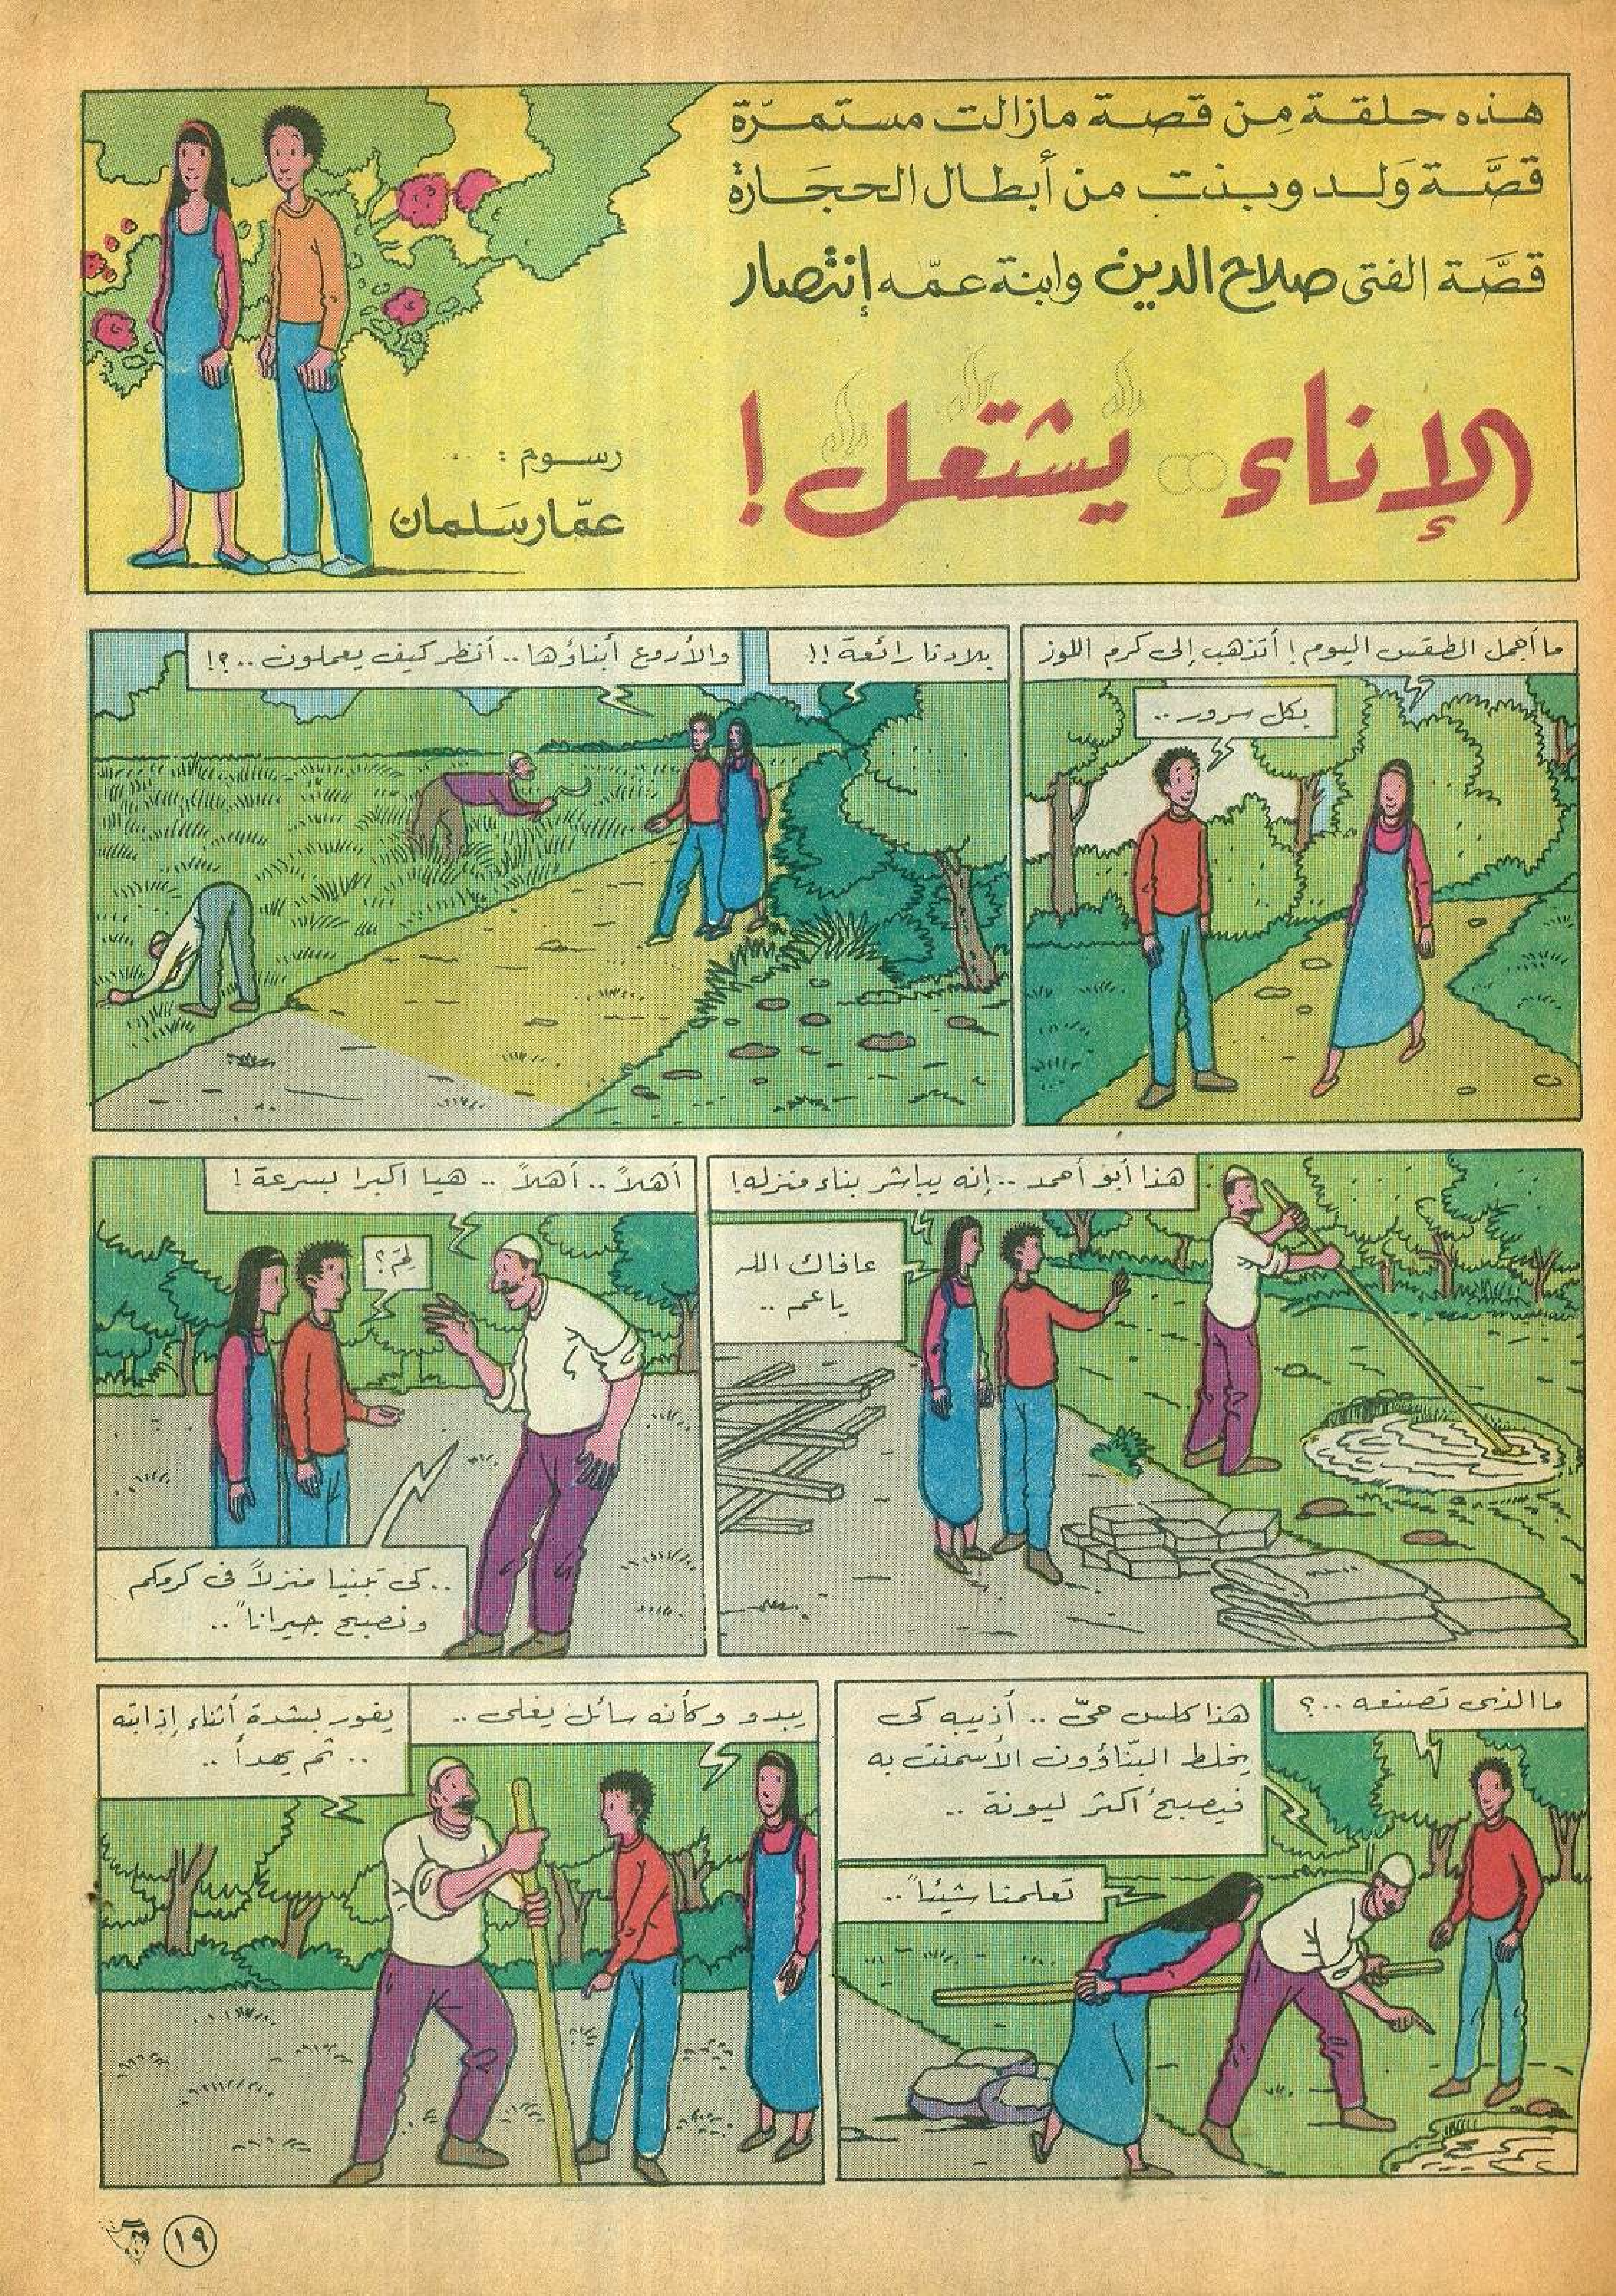 هذه حلقة مِن قصة مازالت مستمرّة
قصَّة وَلد وبنت من أبطال الحجَارة
قصَّة الفتى صلاح الدين وابنة عمّه إنتصار
الإناء يشتعل!
رسوم : ..
عمّار سَلمان
ما أجمل الطقس اليوم! أتذهب إلى كرم اللوز
بكل سرور ..
بلادنا رائعة !!
والأروع أبناؤها .. أنظر كيف يعملون ..؟!
هذا أبو أحمد .. إنه يباشر بناء منزله!
عافاك الله
يا عم ..
أهلاً .. أهلاً .. هيا اكبرا بسرعة !
لِمَ؟
.. كي تبنيا منزلاً في كرمكم
ونصبح جيراناً ..
ما الذي تصنعه ..؟
هذا كلس حيّ .. أذيبه كي
يخلط البنّاؤون الأسمنت به
فيصبح أكثر ليونة ..
تعلمنا شيئاً ..
يبدو وكأنه سائل يغلي ..
يفور بشدة أثناء إذابته
.. ثم يهدأ ..
١٩